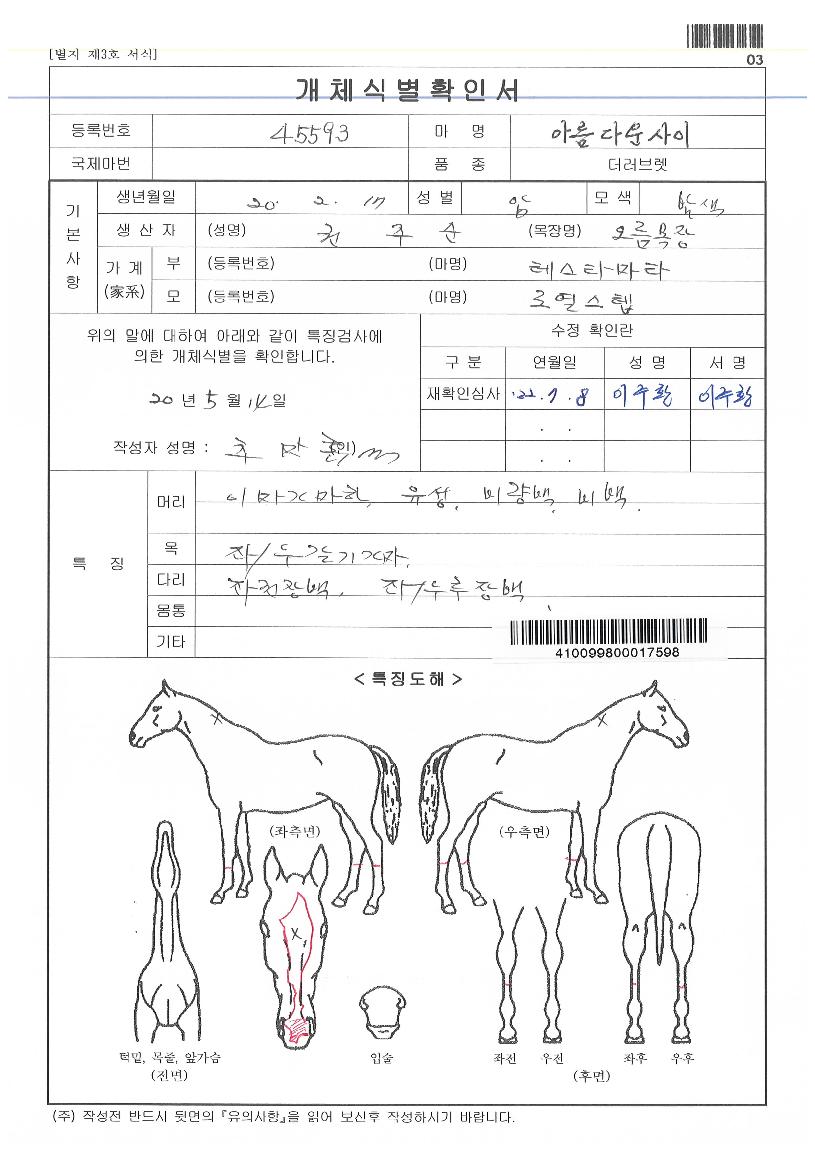 [별지 제3호 서식]
03
개체식별확인서
등록번호 45593 마 명 아름다운사이
국제마번 품 종 더러브렛
기본사항
생년월일 20. 2. 17 성별 암 모색 밤색
생 산 자 (성명) 권 주 순 (목장명) 오름목장
가 계 (家系) 부 (등록번호) (마명) 테스타마타
모 (등록번호) (마명) 로열스텝
위의 말에 대하여 아래와 같이 특징검사에
의한 개체식별을 확인합니다.
20 년 5 월 14 일
작성자 성명 : (인)
수정 확인란
구 분 연월일 성 명 서 명
재확인심사 '22. 7. 8 이주황 이주황
. .
. .
특 징
머리 이마가마하, 유성, 비량백, 비백.
목 좌/우 갈기가마.
다리 좌전장백, 좌/우후장백
몸통
기타
410099800017598
< 특징도해 >
(좌측면) (우측면)
턱밑, 목줄, 앞가슴 입술 좌전 우전 좌후 우후
(전면) (후면)
(주) 작성전 반드시 뒷면의 『유의사항』을 읽어 보신후 작성하시기 바랍니다.